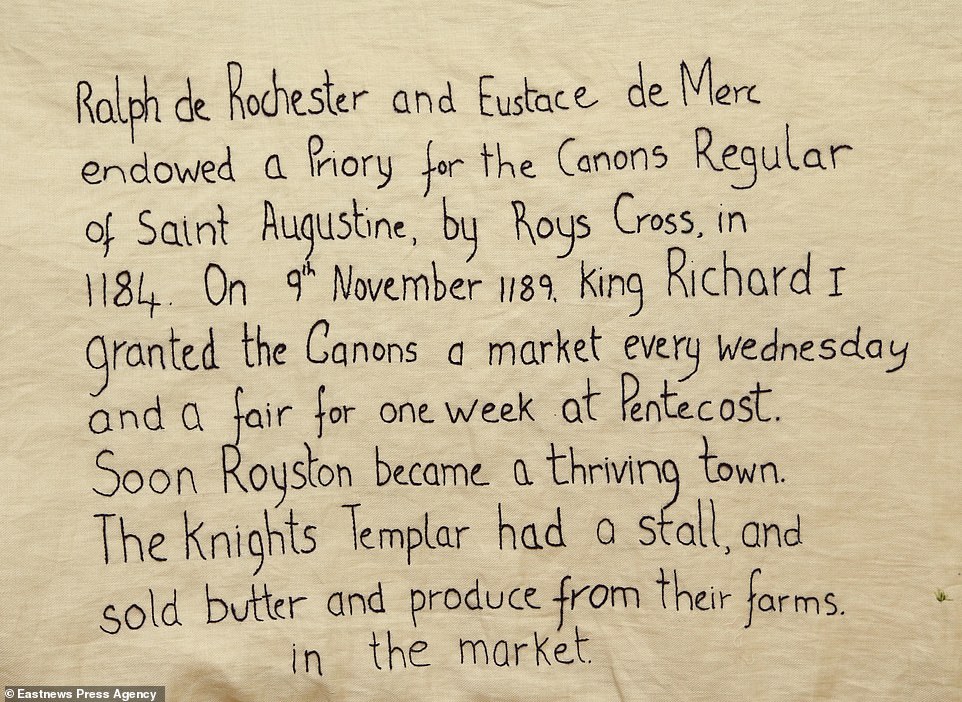 Ralph de Rochester and Eustace de Merc
endowed a Priory for the Canons Regular
of Saint Augustine, by Roys Cross, in
1184. On 9th November 1189. King Richard I
granted the Canons a market every Wednesday
and a fair for one week at Pentecost.
Soon Royston became a thriving town.
The Knights Templar had a stall, and
sold butter and produce from their farms.
in the market.
© Eastnews Press Agency